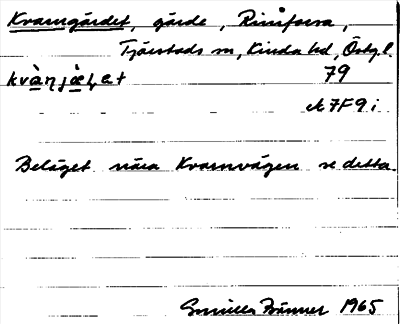 Kvarngärdet, gärde, Riniforsa,
Tjärstads sn, Kinda hd, Östg l.
kvà̱ṇjæ̱̀ḷet 79
A7F9i
Beläget nära Kvarnvägen se detta.
Gunilla Bränner 1965